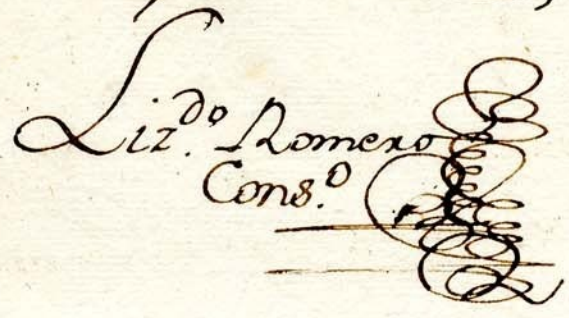 Liz.do Romero
Cons.o